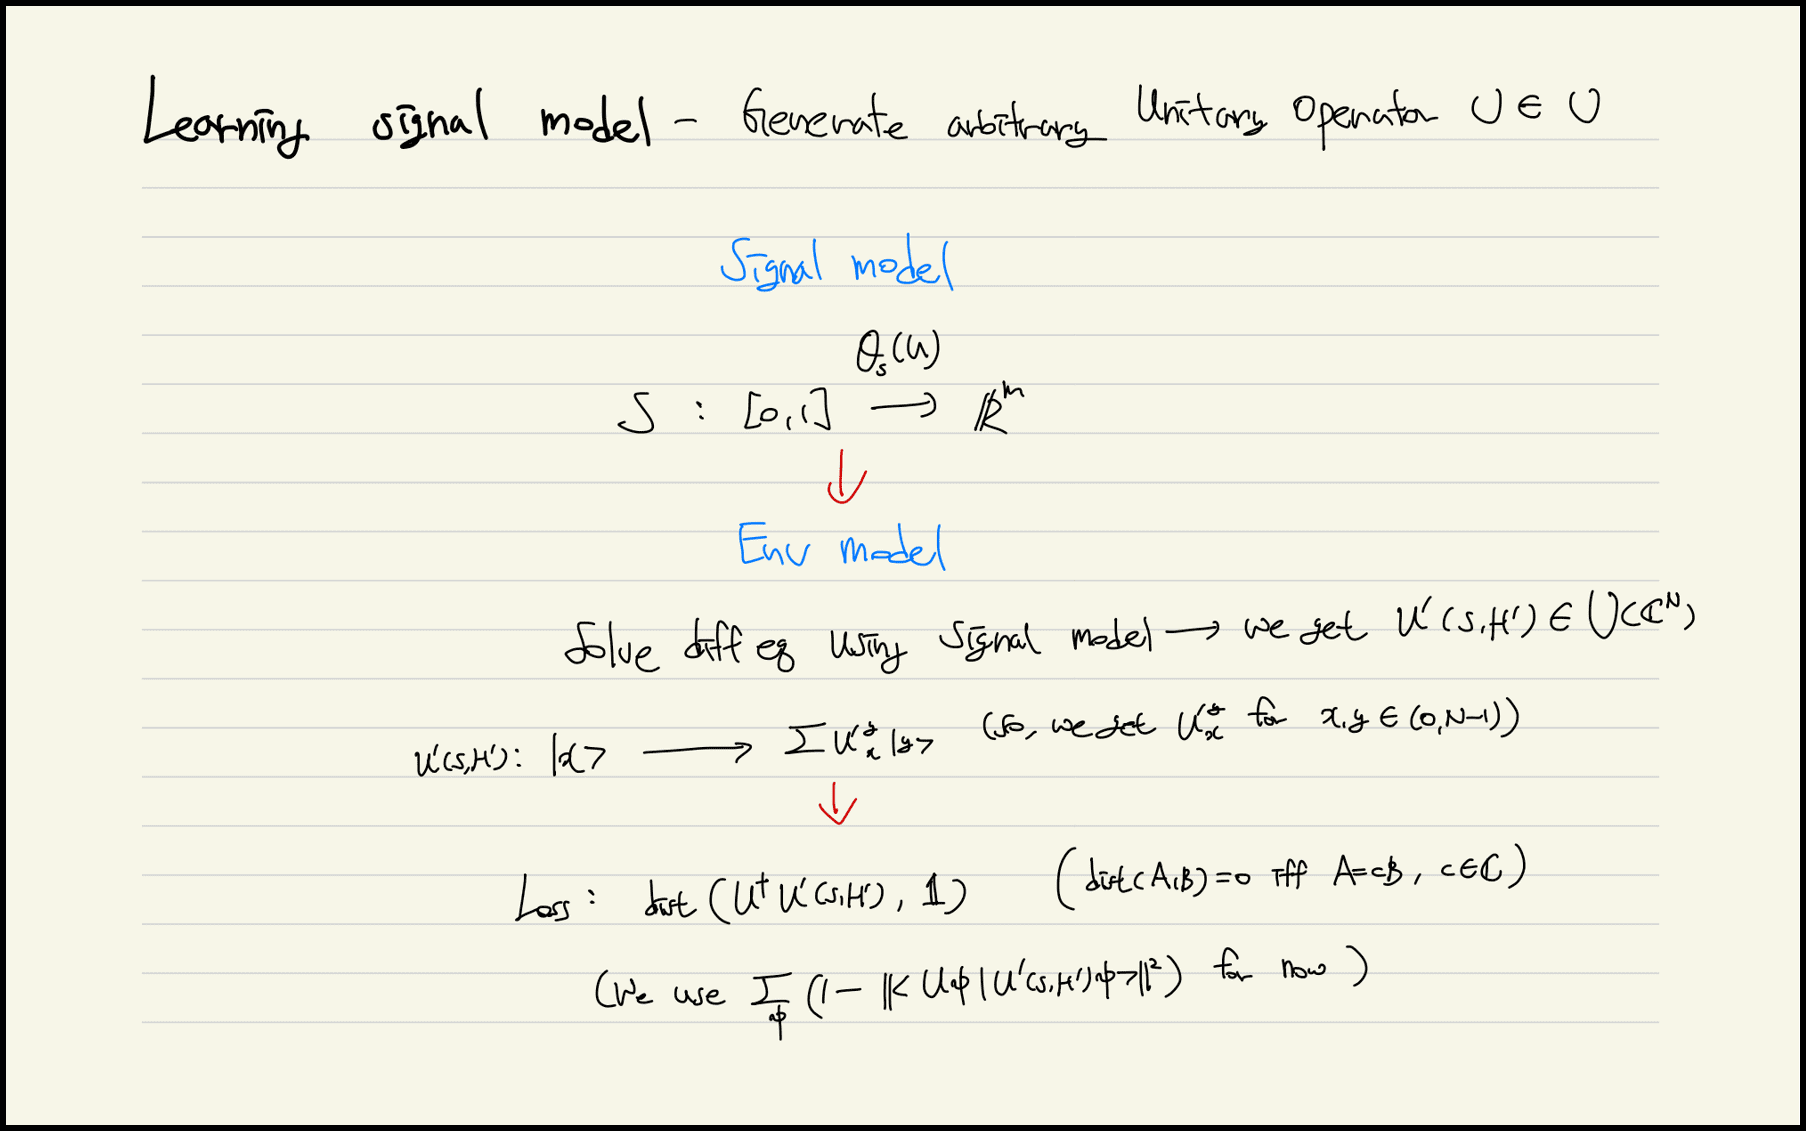 Learning signal model - Generate arbitrary Unitary Operator U ∈ U
Signal model
θ_s(u)
S : [0,1] → ℝ^m
↓
Env model
Solve diff eq using signal model → we get U'(S,H') ∈ U(ℂ^N)
U'(S,H'): |x> → Σ U'^y_x |y> (so, we get U'^y_x for x,y ∈ (0,N-1))
↓
Loss : dist (U†U'(S,H'), 𝟙) (dist(A,B)=0 iff A=cB, c∈ℂ)
(We use Σ_ψ (1 - ||<Uψ|U'(S,H')ψ>||²) for now)